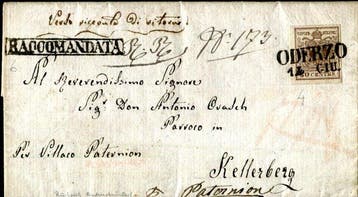 Verso ricevuta di ritorno
RACCOMANDATA
Nº 173.
ODERZO
14 GIU.
CENTES
Al Reverendissimo Signore
Sigr Don Antonio
Parroco in
Per Villaco Paternion
Kellerberg
Paternion